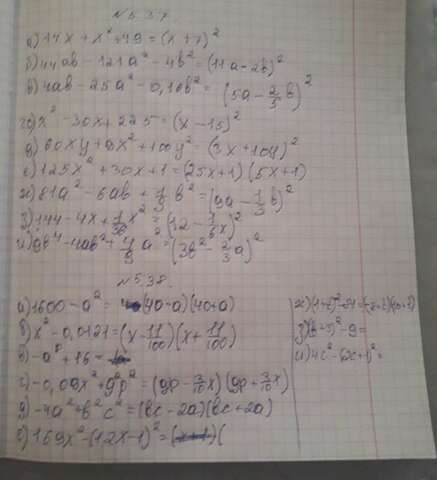 №5.37
а) 14x + x² + 49 = (x + 7)²
б) 44ab - 121a² - 4b² = (11a - 2b)²
в) 4ab - 25a² - 0,16b² = (5a - 2/5 b)²
г) x² - 30x + 225 = (x - 15)²
д) 60xy + 9x² + 100y² = (3x + 10y)²
е) 125x² + 30x + 1 = (25x + 1)(5x + 1)
ж) 81a² - 6ab + 1/9 b² = (9a - 1/3 b)²
з) 144 - 4x + 1/36 x² = (12 - 1/6 x)²
и) 9b⁴ - 4ab² + 4/9 a = (3b² - 2/3 a)²
№5.38.
а) 1600 - a² = (40 - a)(40 + a)
б) x² - 0,0121 = (x - 11/100)(x + 11/100)
в) -a⁸ + 16 =
г) -0,09x² + g²p² = (gp - 3/10 x)(gp + 3/10 x)
д) -4a² + b²c² = (bc - 2a)(bc + 2a)
е) 169x² - (12x - 1)² = (
з) (b + 5)² - 9 =